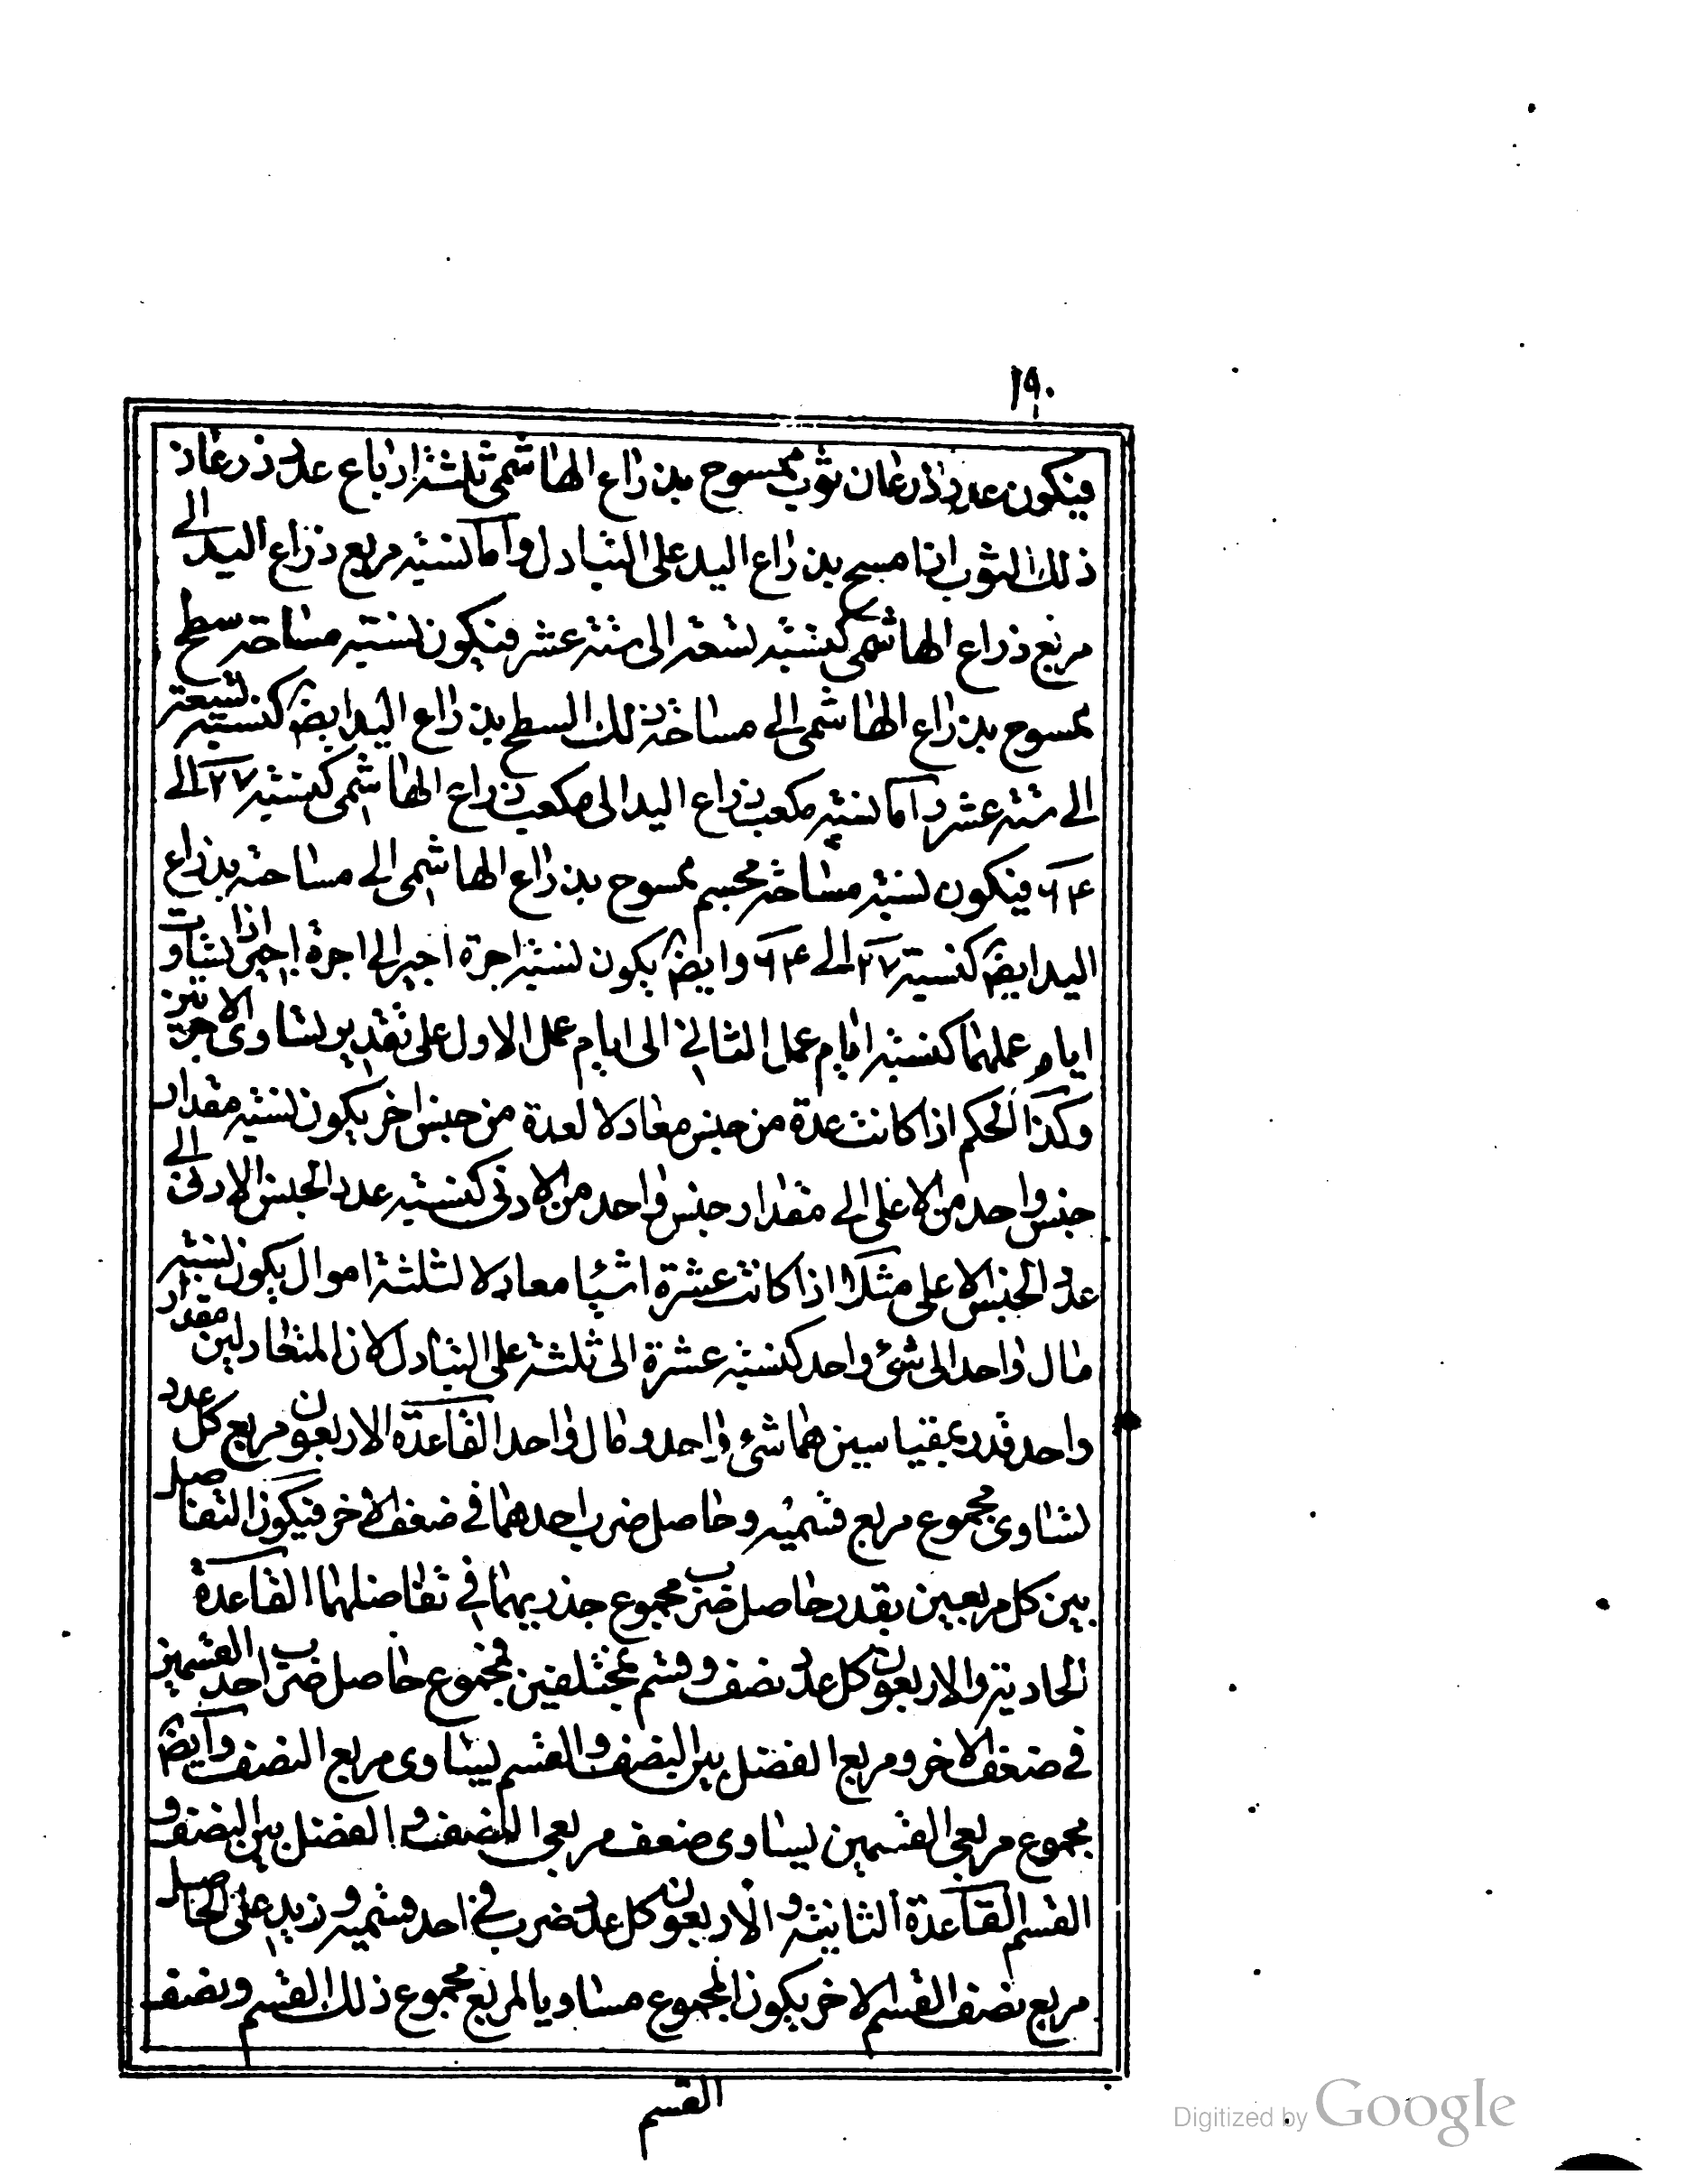 ١٩٠
فيكون عدد ذرعان ثوب ممسوح بذراع الهاشمى ثلثة ارباع عدد ذرعان
ذلك الثوب اذا مسح بذراع اليد على التبادل واما نسبة مربع ذراع اليد الى
مربع ذراع الهاشمى كنسبة تسعة الى ستة عشر فيكون نسبة مساحة سطح
ممسوح بذراع الهاشمى الى مساحة ذلك السطح بذراع اليد ايضا كنسبة تسعة
الى ستة عشر واما نسبة مكعب ذراع اليد الى مكعب ذراع الهاشمى كنسبة ٢٧ الى
٦۴ فيكون نسبة مساحة مجسم ممسوح بذراع الهاشمى الى مساحته بذراع
اليد ايضا كنسبة ٢٧ الى ٦۴ وايضا يكون نسبة اجرة اجير الى اجرة اجير اذا تساوت
ايام عملهما كنسبة ايام عمل الثانى الى ايام عمل الاول على تقدير تساوى الاجرتين
وكذا الحكم اذا كانت عدة من جنس معادلا لعدة من جنس اخر يكون نسبة مقدار
جنس واحد من الاعلى الى مقدار جنس واحد من الادنى كنسبة عدد الجنس الادنى الى
عدد الجنس الاعلى مثلا اذا كانت عشرة اشيا معادلا لثلثة اموال يكون نسبة
مال واحد الى شئ واحد كنسبة عشرة الى ثلثة على التبادل لان المتعادلين مقدار
واحد قدر بمقياسين هما شئ واحد ومال واحد القاعدة الاربعون مربع كل عدد
تساوى مجموع مربع قسميه وحاصل ضرب احدهما فى ضعف الاخر فيكون التفاضل
بين كل مربعين بقدر حاصل ضرب مجموع جذريهما فى تفاضلهما القاعدة
الحادية والاربعون كل عدد نصف وقسم بمختلفين فمجموع حاصل ضرب احد القسمين
فى ضعف الاخر ومربع الفضل بين النصف والقسم يساوى مربع النصف وايضا
مجموع مربعى القسمين يساوى ضعف مربعى النصف والفضل بين النصف و
القسم القاعدة الثانية والاربعون كل عدد ضرب فى احد قسميه وزيد على الحاصل
مربع نصف القسم الاخر يكون المجموع مساويا لمربع مجموع ذلك القسم ونصف
القسم
Digitized by Google